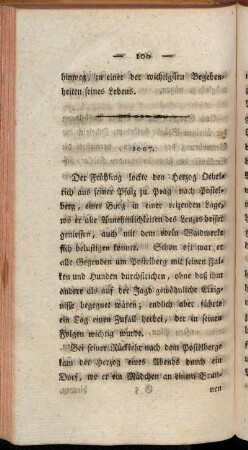 — 100 —
hinweg, zu einer der wichtigsten Begeben-
heiten seines Lebens.
1007.
Der Frühling lockte den Herzog Othel-
rich aus seiner Pfalz zu Prag nach Postel-
berg, einer Burg in einer reizenden Lage,
wo er alle Annehmlichkeiten des Lenzes besser
geniessen, auch mit dem edeln Waidwerke
sich belustigen konnte. Schon oft war er
alle Gegenden um Postelberg mit seinen Fal-
ken und Hunden durchstrichen, ohne daß ihm
andere als auf der Jagd gewöhnliche Ereig-
nisse begegnet wären; endlich aber führte
ein Tag einen Zufall herbei, der in seinen
Folgen wichtig wurde.
Bei seiner Rückkehr nach dem Postelberge
kam der Herzog eines Abends durch ein
Dorf, wo er ein Mädchen an einem Brun-
nen